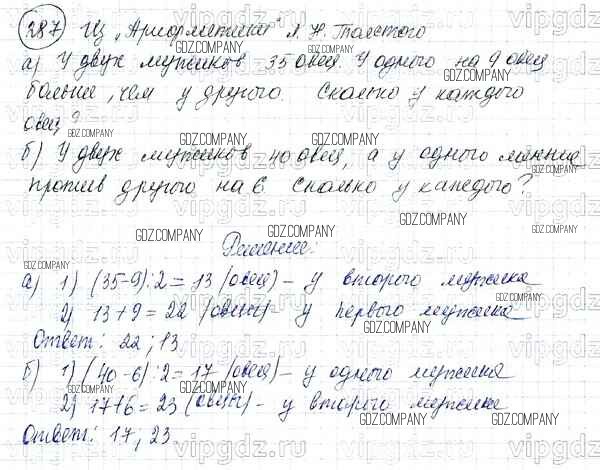 287 Из „Арифметики" Л. Н. Толстого
а) У двух мужиков 35 овец. У одного на 9 овец
больше, чем у другого. Сколько у каждого
овец?
б) У двух мужиков 40 овец, а у одного меньше
против другого на 6. Сколько у каждого?
Решение:
а) 1) (35-9):2 = 13 (овец) – у второго мужика
2) 13+9 = 22 (овцы) – у первого мужика
Ответ: 22; 13
б) 1) (40-6):2 = 17 (овец) – у одного мужика
2) 17+6 = 23 (овцы) – у второго мужика
Ответ: 17, 23
GDZ.COMPANY
vipgdz.ru